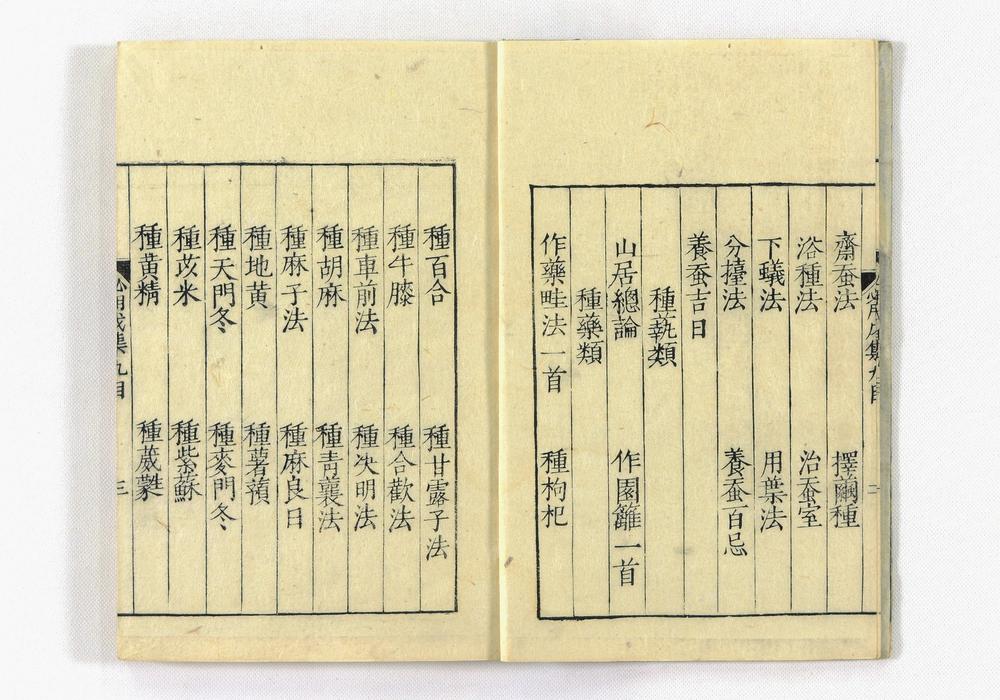 齋蚕法　擇繭種
浴種法　治蚕室
下蟻法　用葉法
分擡法　養蚕百忌
養蚕吉日
種蓺類
山居總論　作園籬一首
種藥類
作藥畦法一首　種枸杞
種百合　種甘露子法
種牛膝　種合歡法
種車前法　種决明法
種胡麻　種靑蘘法
種麻子法　種麻良日
種地黄　種薯蕷
種天門冬　種麥門冬
種苡米　種紫蘇
種黄精　種葳蕤